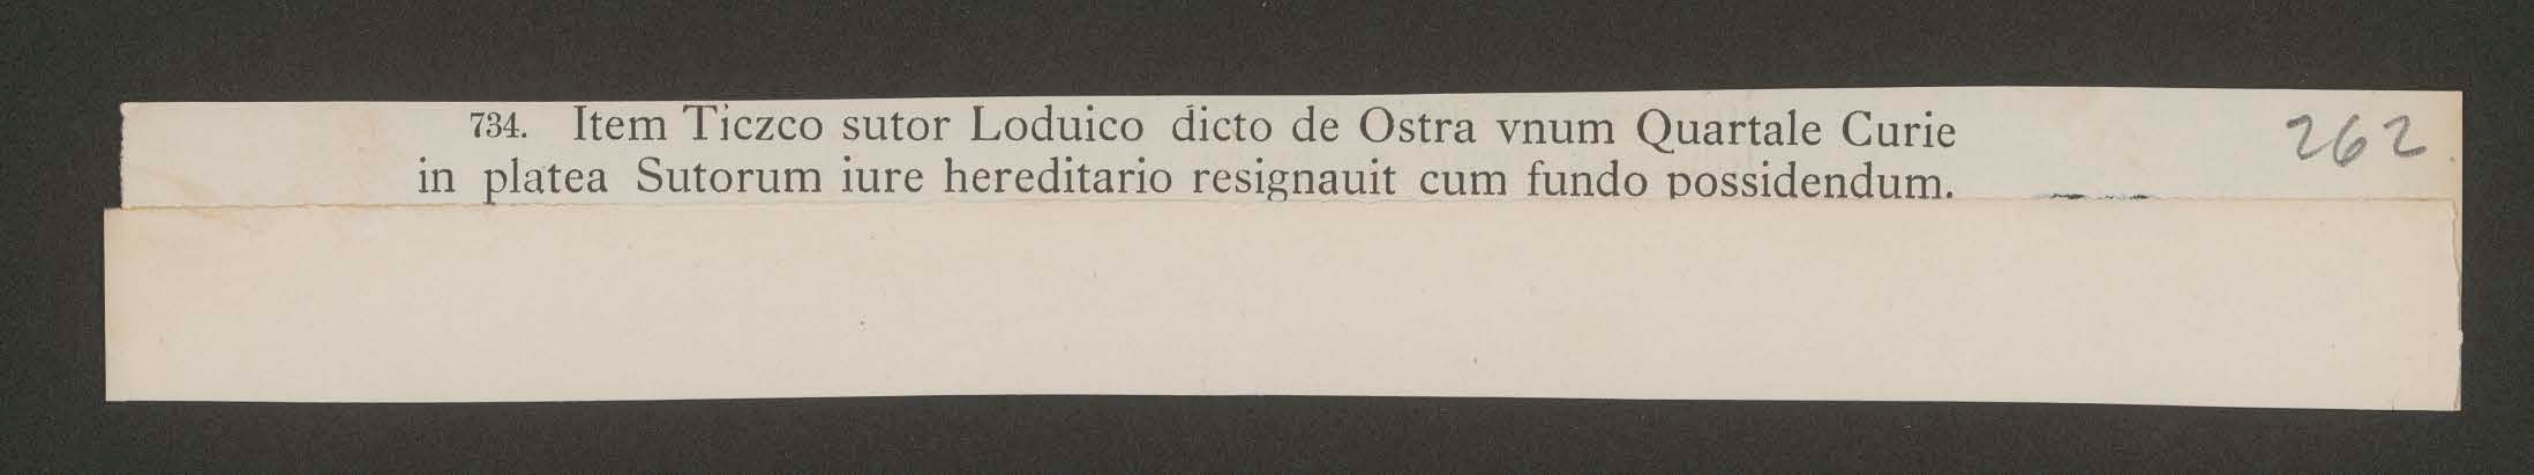 734. Item Ticzco sutor Loduico dicto de Ostra vnum Quartale Curie
in platea Sutorum iure hereditario resignauit cum fundo possidendum.
262